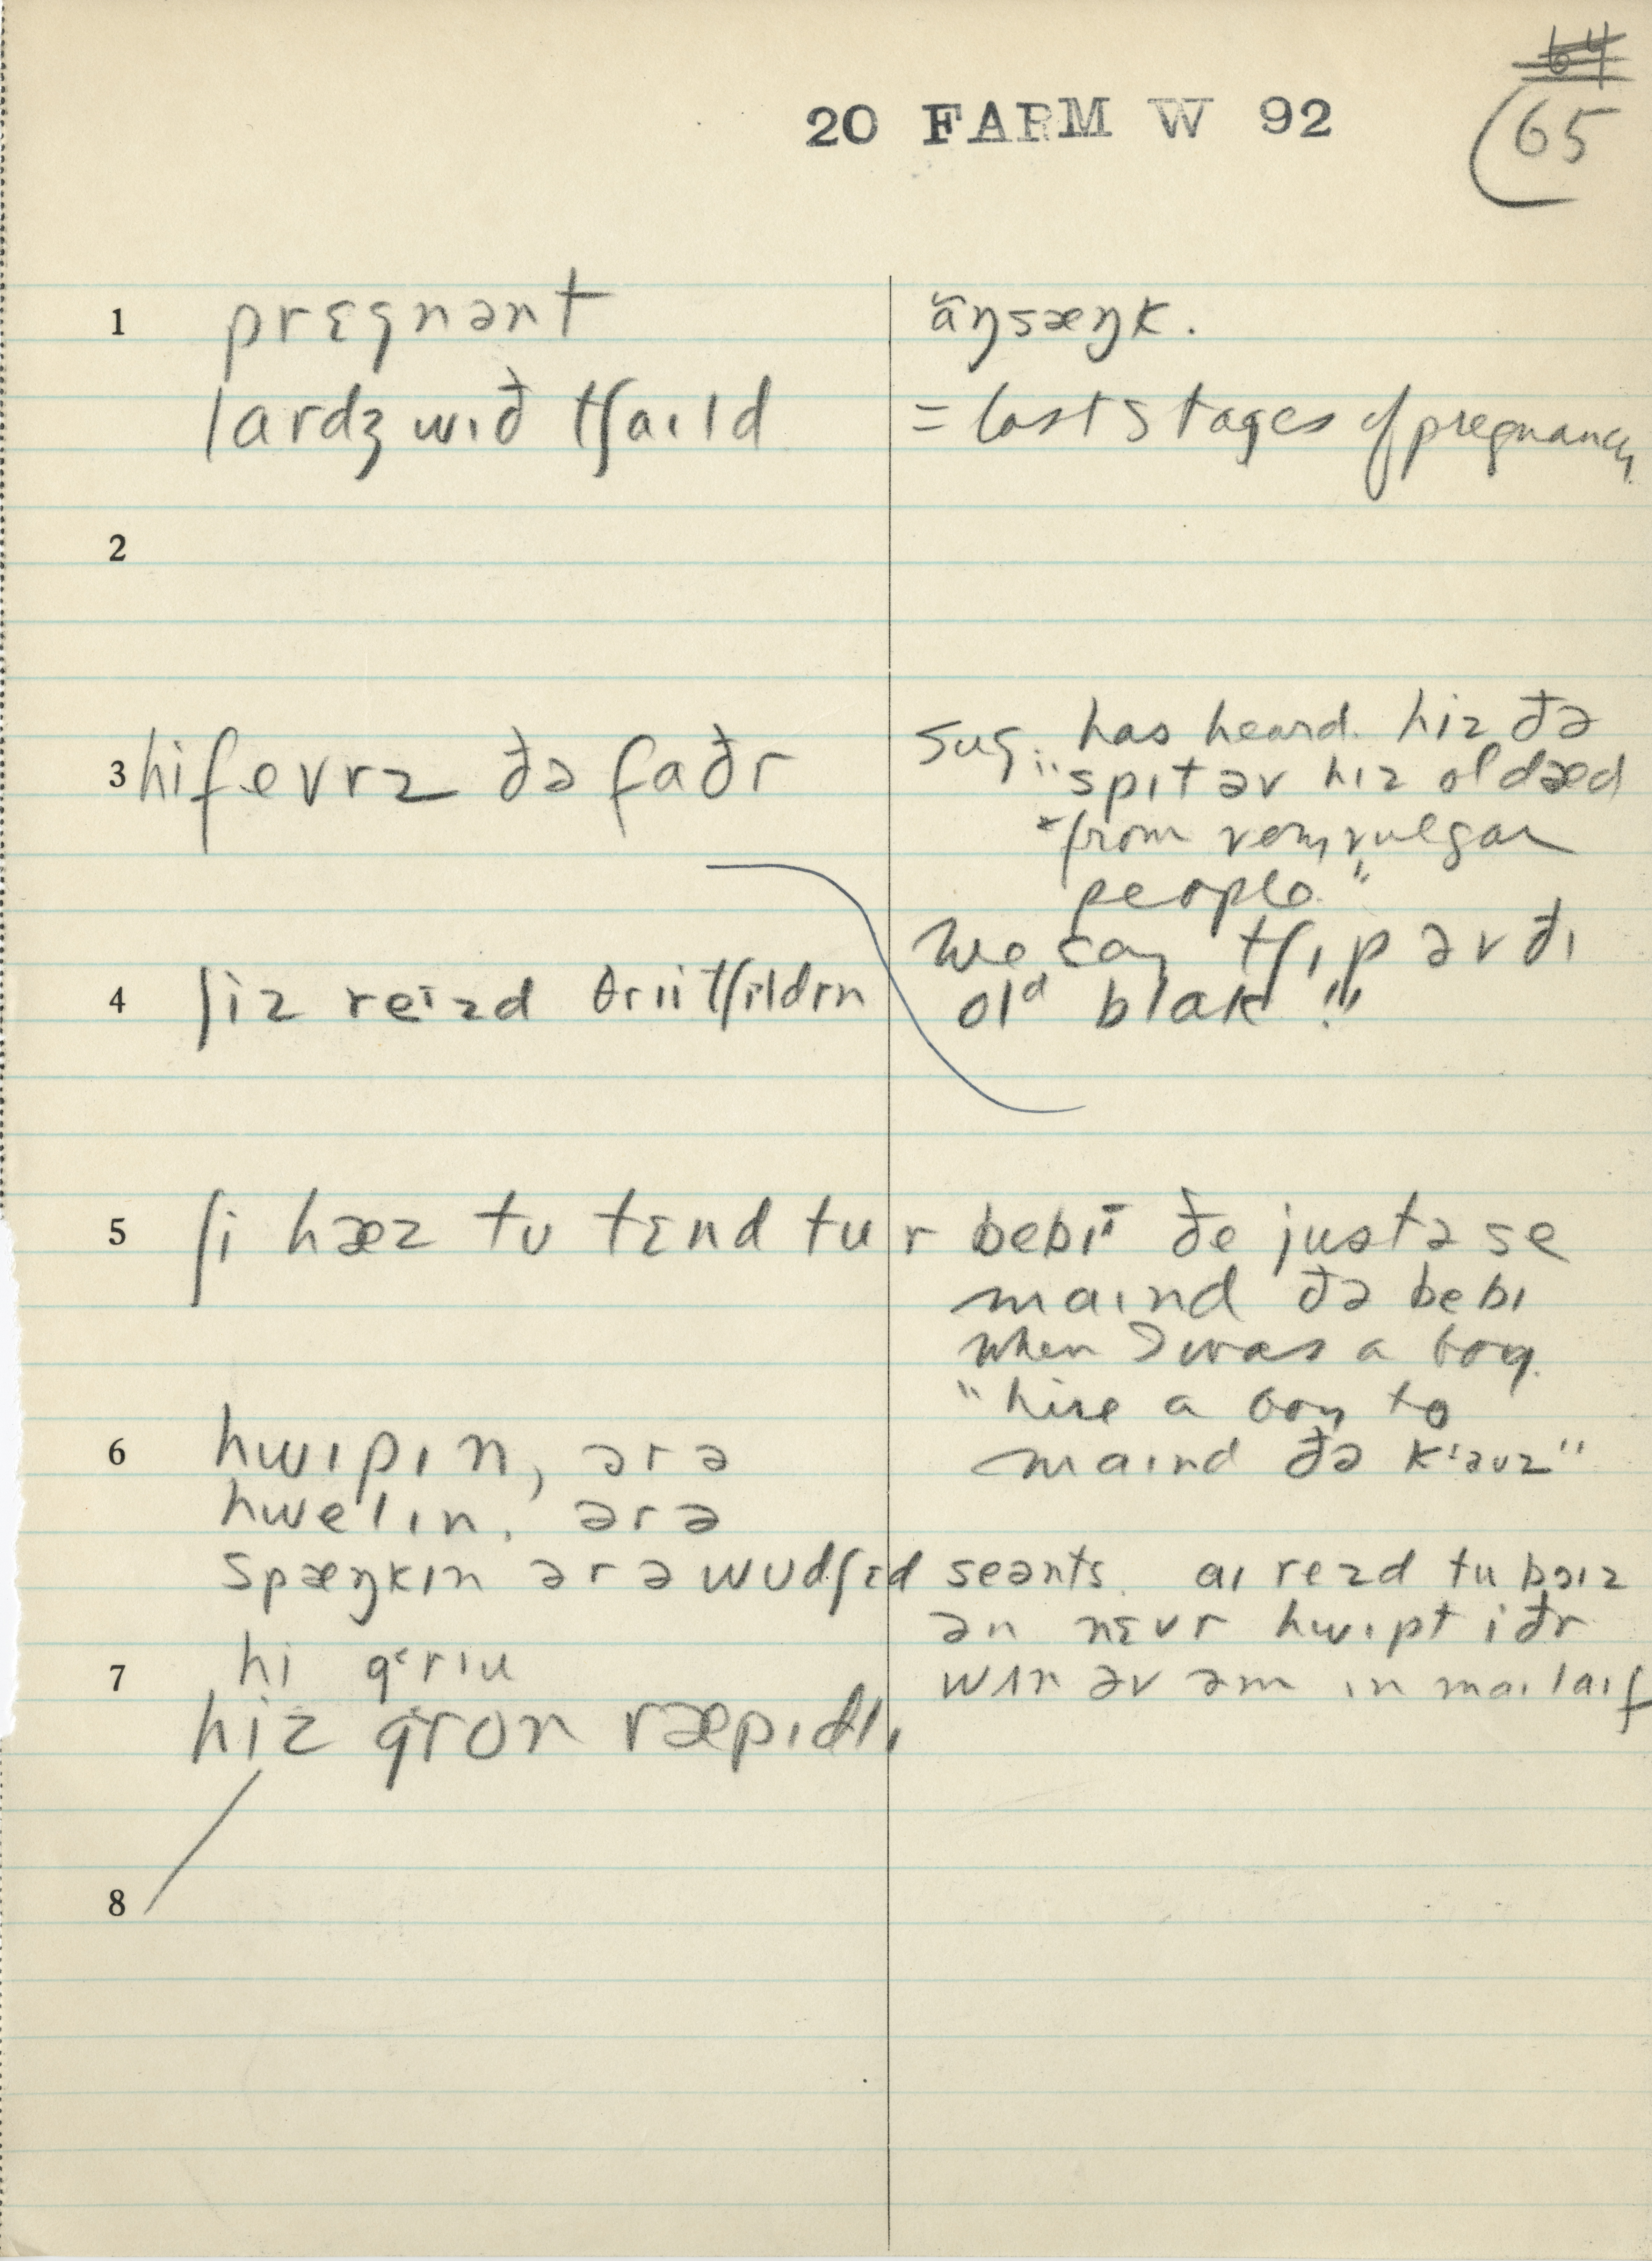 64
65
20 FARM W 92
1 prɛgnənt
ãŋsæŋk.
lardʒ wɪð tʃaɪld
= last stages of pregnancy
2
3 hi fevrz ðə faðr
sug. has heard. hiz ðə
"spɪt əv hɪz ol dæd
from very vulgar
people."
We say tʃɪp əv ðɪ
old blak!"
4 ʃiz reɪzd θrii tʃɪldrn
5 ʃi hæz tʊ tɛnd tu r bebi ðe justə se
maɪnd ðə bebɪ
when I was a boy.
"hire a boy to
maɪnd ðə kꞌəʊz"
6 hwɪpɪn, ər ə
hwelɪn, ər ə
spæŋkɪn ər ə wʊdʃɛd seənts. aɪ rezd tu bɔɪz
ən nɛvr hwɪpt iðr
wʌn əv əm ɪn maɪ laɪf
7 hi gꞌrɪu
hiz gron ræpɪdlɪ
8